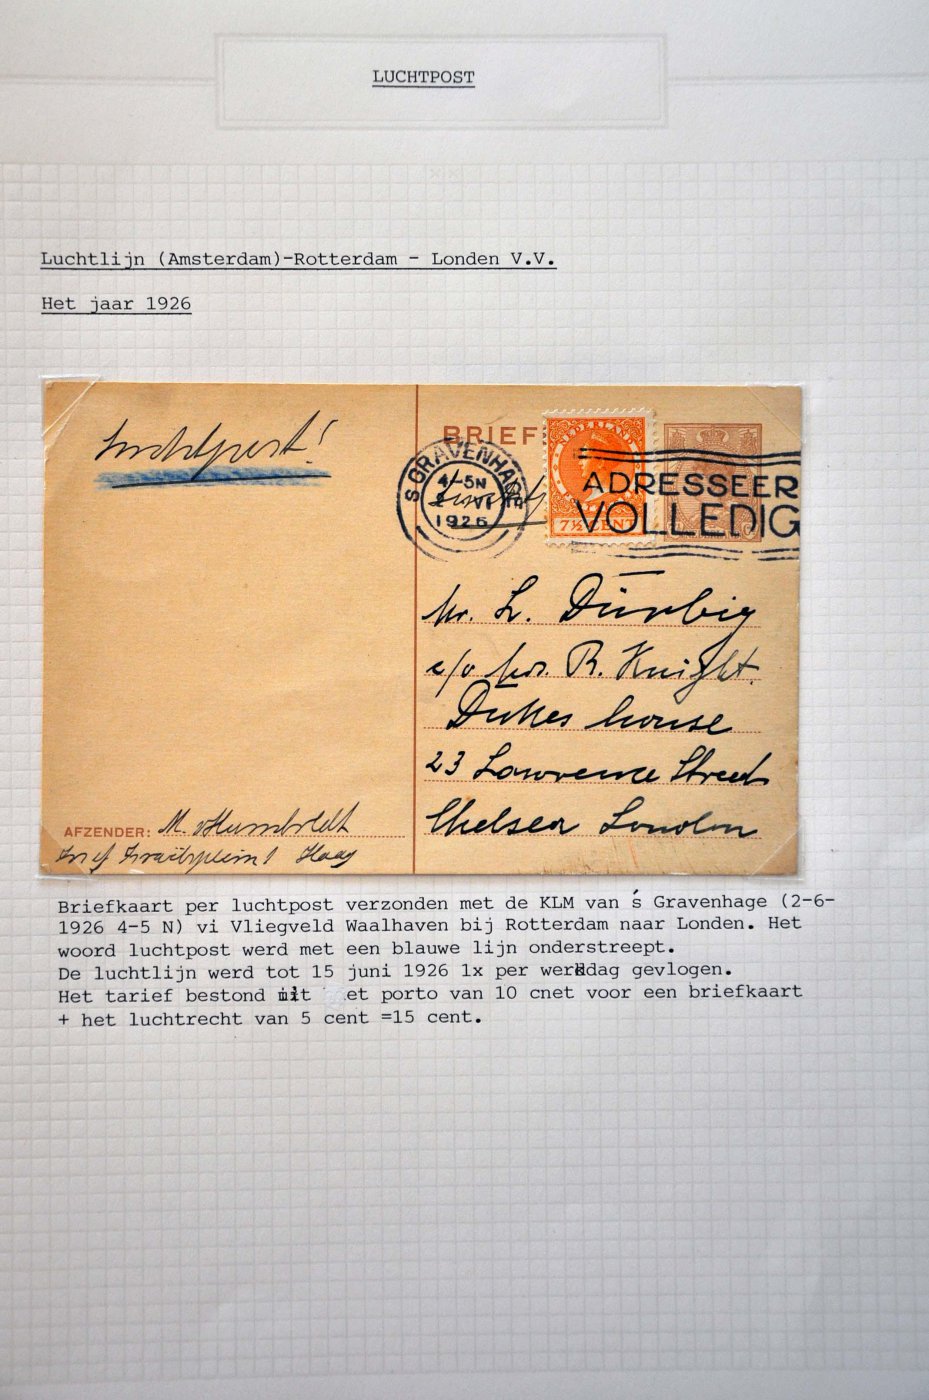 LUCHTPOST
Luchtlijn (Amsterdam)-Rotterdam - Londen V.V.
Het jaar 1926
Luchtpost!
BRIEFK
NEDERLAND
7½ CENT
S GRAVENHAGE
4-5N
2 VI
1926
ADRESSEER
VOLLEDIG
Mr. L. Dürbig
c/o Mrs. R. Knight.
Dukes house
23 Lawrence Street
Chelsea London
AFZENDER: M. v Humboldt
Jozef Israëlsplein 1 Haag
Briefkaart per luchtpost verzonden met de KLM van ś Gravenhage (2-6-
1926 4-5 N) vi Vliegveld Waalhaven bij Rotterdam naar Londen. Het
woord luchtpost werd met een blauwe lijn onderstreept.
De luchtlijn werd tot 15 juni 1926 1x per werkdag gevlogen.
Het tarief bestond uit et porto van 10 cnet voor een briefkaart
+ het luchtrecht van 5 cent =15 cent.